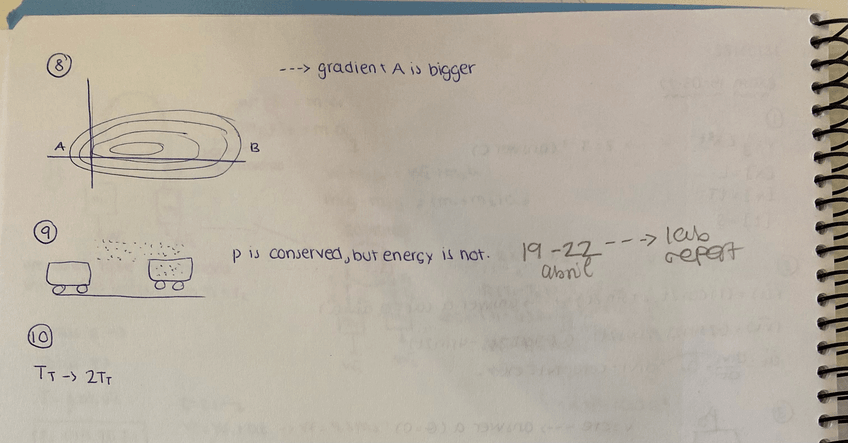 8
---> gradient A is bigger
A
B
9
p is conserved, but energy is not.
19-22 ---> lab
abril report
10
T_T -> 2T_T